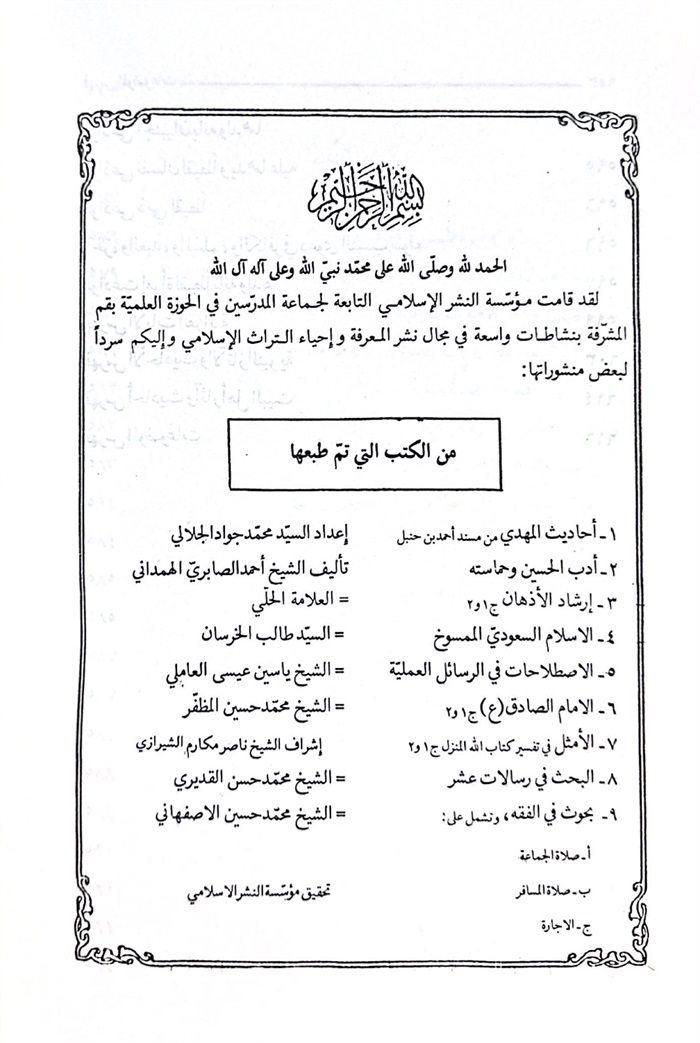 بسم الله الرحمن الرحيم
الحمد لله وصلّى الله على محمّد نبيّ الله وعلى آله آل الله
لقد قامت مؤسّسة النشر الإسلامي التابعة لجماعة المدرّسين في الحوزة العلميّة بقم
المشرّفة بنشاطات واسعة في مجال نشر المعرفة وإحياء التراث الإسلامي وإليكم سرداً
لبعض منشوراتها:
من الكتب التي تمّ طبعها
١ـ أحاديث المهدي من مسند أحمد بن حنبل إعداد السيّد محمّد جواد الجلالي
٢ـ أدب الحسين وحماسته تأليف الشيخ أحمد الصابريّ الهمداني
٣ـ إرشاد الأذهان ج١و٢ = العلامة الحلّي
٤ـ الاسلام السعوديّ الممسوخ = السيّد طالب الخرسان
٥ـ الاصطلاحات في الرسائل العمليّة = الشيخ ياسين عيسى العاملي
٦ـ الامام الصادق(ع) ج١و٢ = الشيخ محمّد حسين المظفّر
٧ـ الأمثل في تفسير كتاب الله المنزل ج١و٢ إشراف الشيخ ناصر مكارم الشيرازي
٨ـ البحث في رسالات عشر = الشيخ محمّد حسن القديري
٩ـ بحوث في الفقه، وتشمل على: = الشيخ محمّد حسين الاصفهاني
أـ صلاة الجماعة
ب ـ صلاة المسافر تحقيق مؤسّسة النشر الاسلامي
ج ـ الاجارة